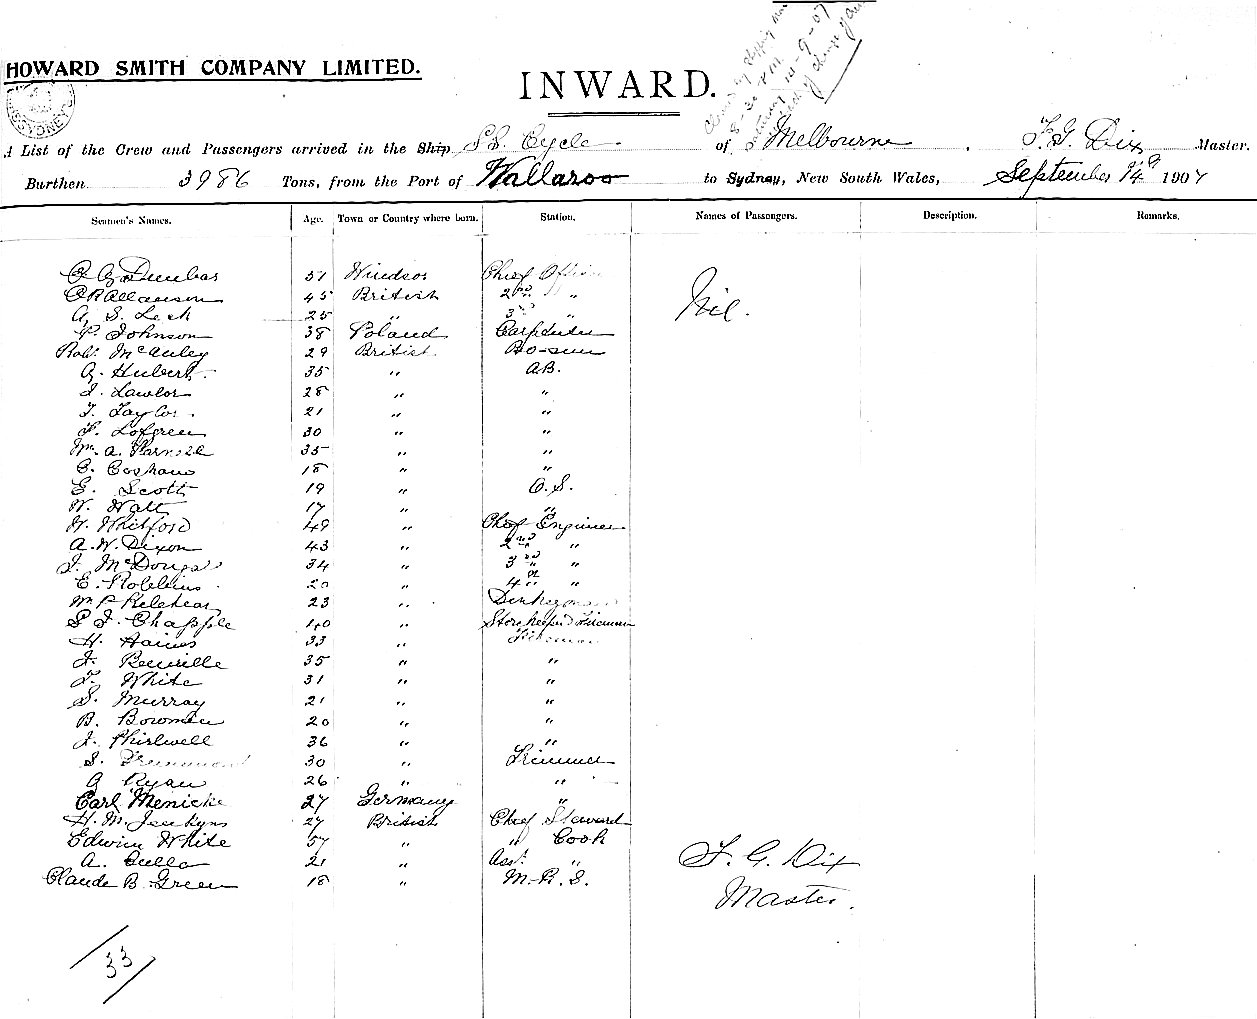 HOWARD SMITH COMPANY LIMITED.
INWARD.
SYDNEY
8-30 P.M.
14-9-07
A List of the Crew and Passengers arrived in the Ship S.S. Cycle of Melbourne, F. G. Dix Master.
Burthen 3986 Tons, from the Port of Wallaroo to Sydney, New South Wales, September 14th 1907
Seamen's Names. Age. Town or Country where born. Station. Names of Passengers. Description. Remarks.
Dunbar 51 Windsor Chief Officer
Allanson 45 British 2nd "
Nil.
A. S. Lech 25 " 3rd "
P. Johnson 38 Poland Carpenter
Robt McAuley 29 British Bo-sun
A. Hubert 35 " A.B.
J. Lawlor 28 " "
T. Taylor 21 " "
F. Lofgren 30 " "
Wm. A. Parnell 35 " "
C. 18 " "
E. Scott 19 " O.S.
W. Watt 17 " "
W. Whitford 49 " Chief Engineer
A. W. Dixon 43 " 2nd "
J. McDougal 34 " 3rd "
E. Robbins 20 " 4th "
Wm P Kelehear 23 " Donkeyman
P J. Chapple 40 " Storekeeper & Fireman
H. Haines 33 " Fireman
J. 35 " "
T. White 31 " "
S. Murray 21 " "
B. Bowman 20 " "
J. Thirlwell 36 " "
S. 30 " Trimmer
Ryan 26 " "
Carl Menicke 27 Germany "
H. M. Jenkyns 27 British Chief Steward
Edwin White 57 " " Cook
A. 21 " Asst. "
F. G. Dix
Claude B. Green 18 " M.R.S.
Master.
33